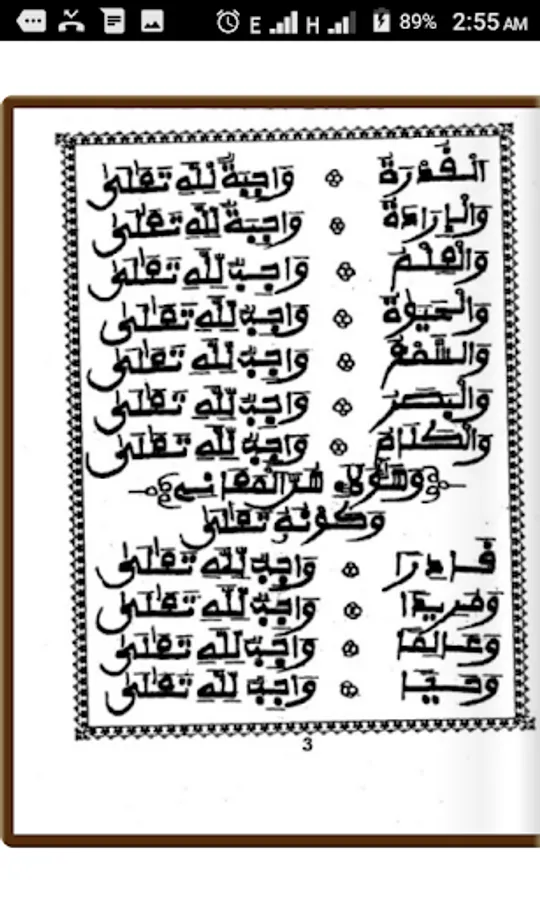 E H 89% 2:55 AM
اَلْقُدْرَةُ ۞ وَاجِبَةٌ لِلَّهِ تَعَلَىٰ
وَالْإِرَادَةُ ۞ وَاجِبَةٌ لِلَّهِ تَعَلَىٰ
وَالْعِلْمُ ۞ وَاجِبٌ لِلَّهِ تَعَلَىٰ
وَالْحَيَوٰةُ ۞ وَاجِبَةٌ لِلَّهِ تَعَلَىٰ
وَالسَّمْعُ ۞ وَاجِبٌ لِلَّهِ تَعَلَىٰ
وَالْبَصَرُ ۞ وَاجِبٌ لِلَّهِ تَعَلَىٰ
وَالْكَلَامُ ۞ وَاجِبٌ لِلَّهِ تَعَلَىٰ
الْمَعَانِي
وَكَوْنُهُ تَعَلَىٰ
قَادِرًا ۞ وَاجِبٌ لِلَّهِ تَعَلَىٰ
وَمُرِيدًا ۞ وَاجِبٌ لِلَّهِ تَعَلَىٰ
وَعَالِمًا ۞ وَاجِبٌ لِلَّهِ تَعَلَىٰ
وَحَيًّا ۞ وَاجِبٌ لِلَّهِ تَعَلَىٰ
3